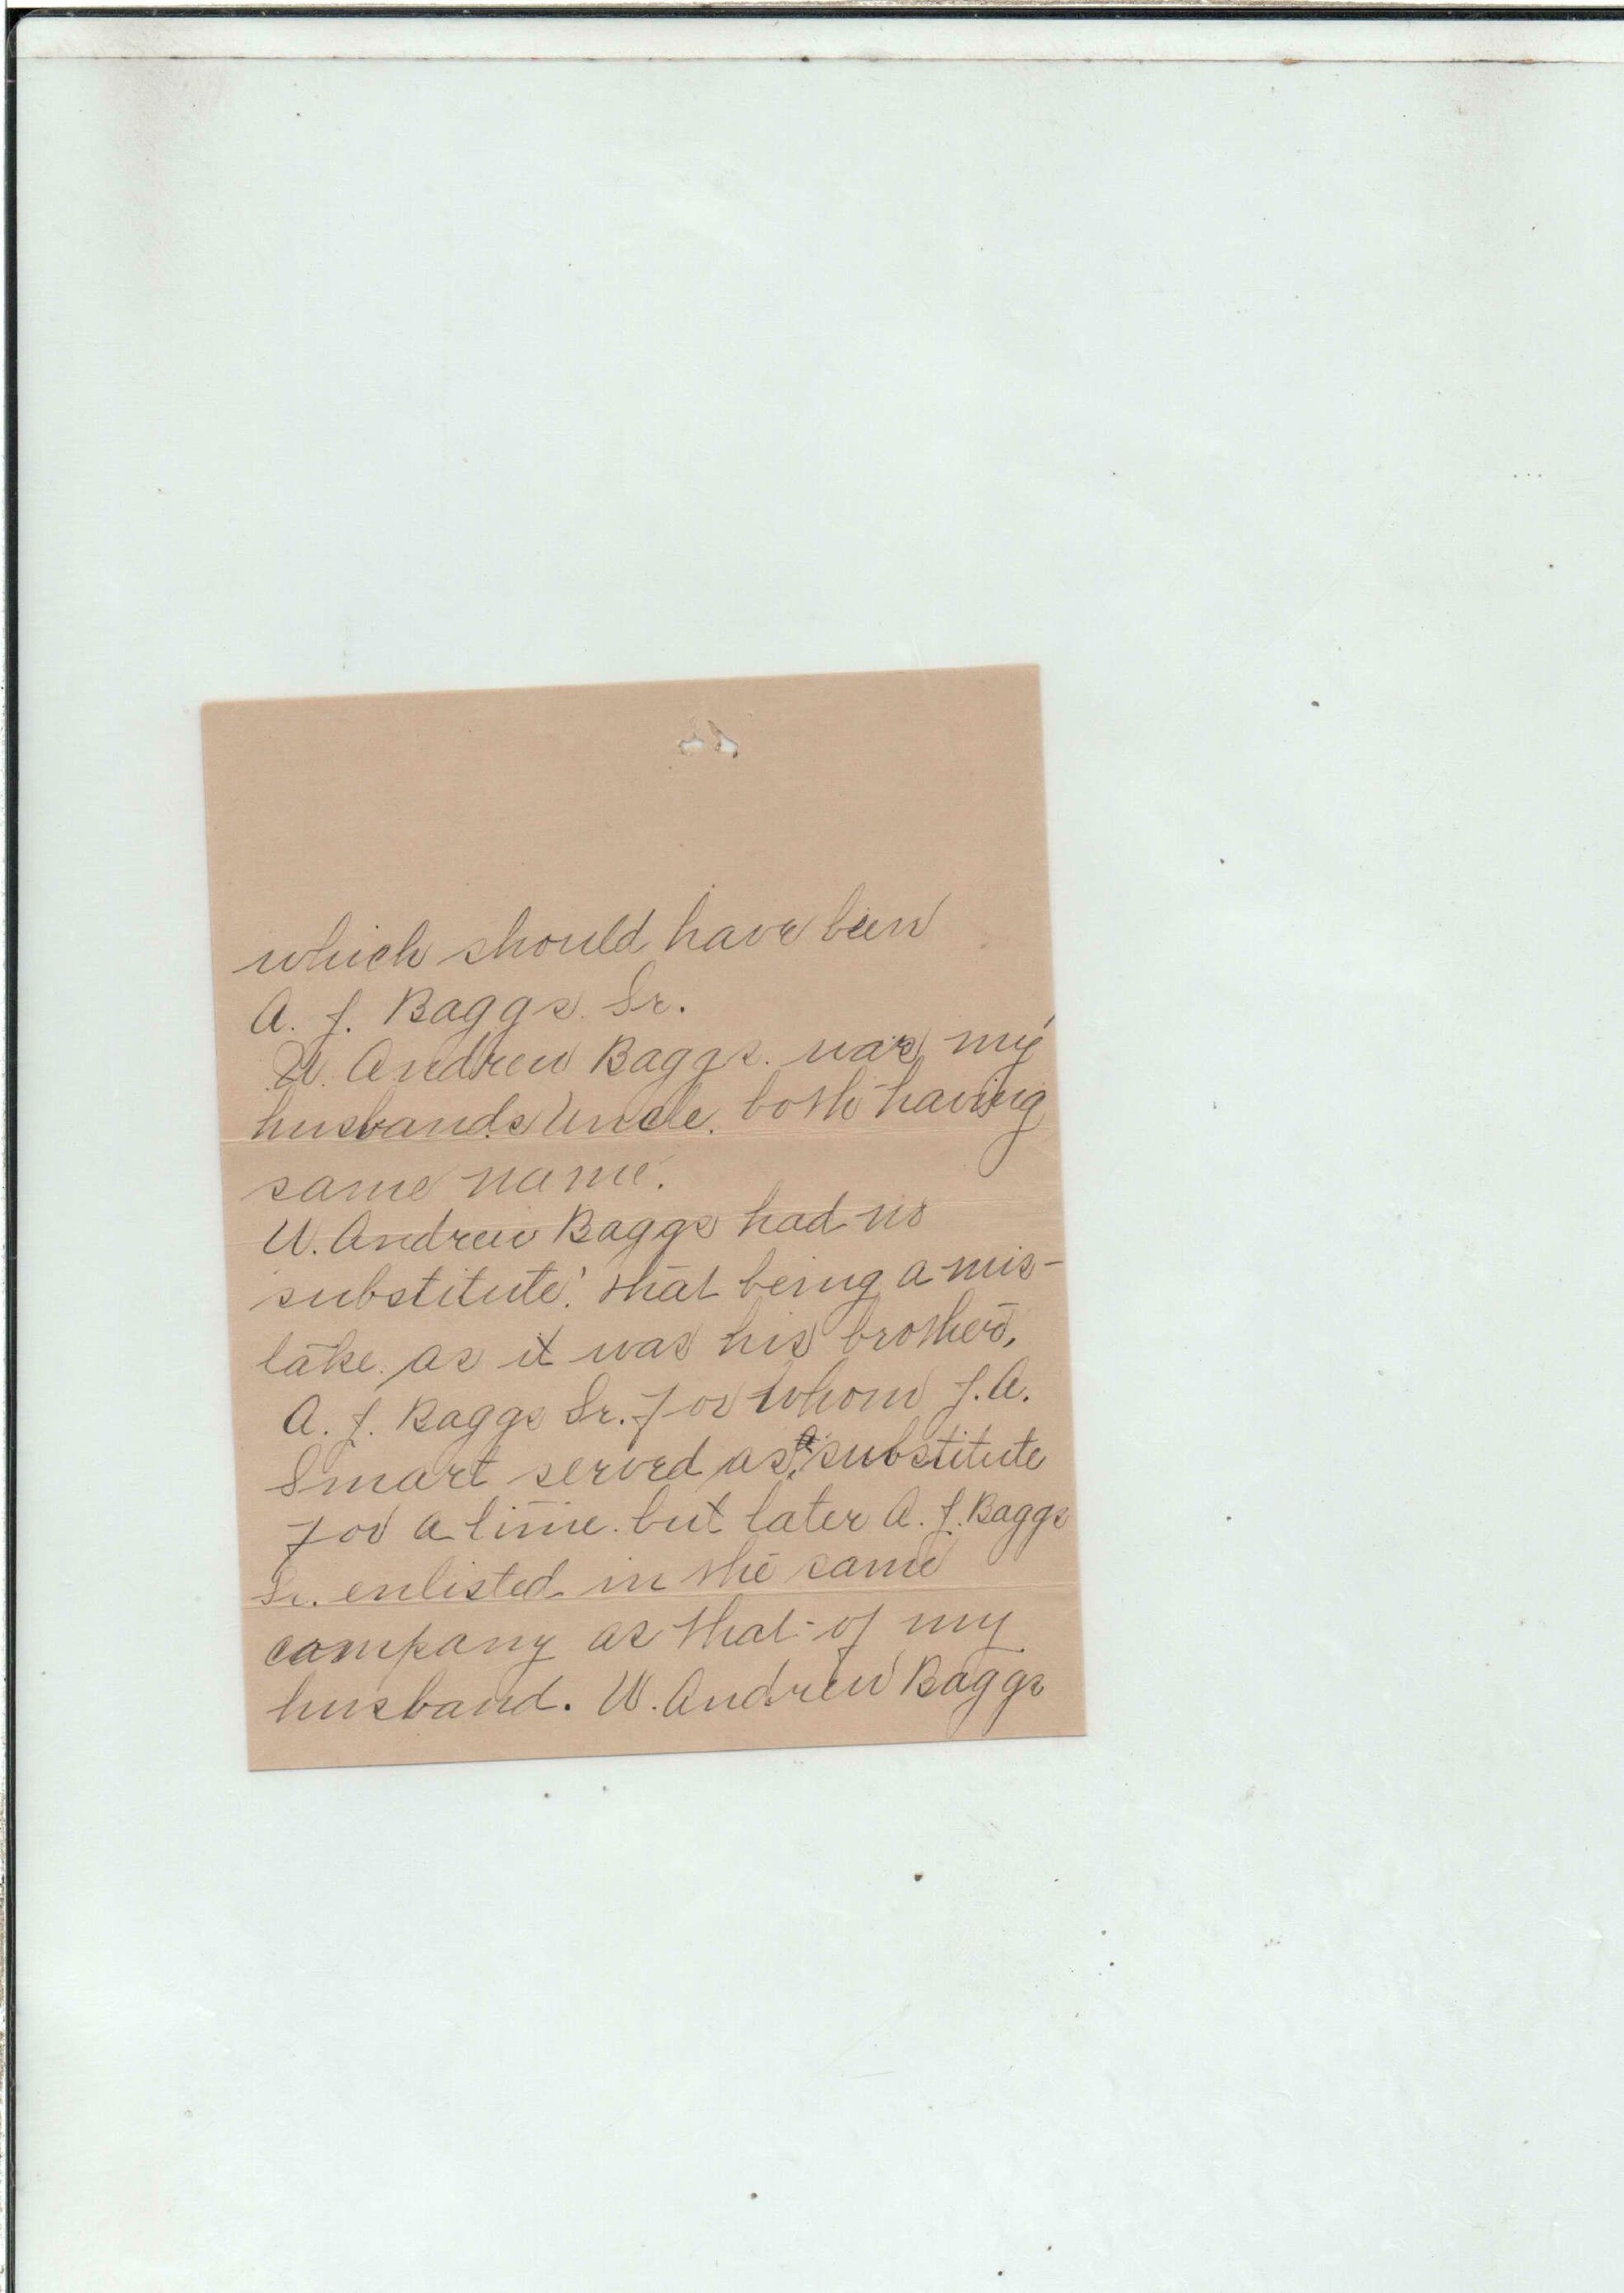 which should have been
A. J. Baggs. Sr.
W. Andrew Baggs. was my
husbands Uncle. both having
same name.
W. Andrew Baggs had no
substitute. that being a mis-
take. as it was his brother,
A. J. Baggs Sr. for whom J. A.
Smart served as a substitute
for a time. but later A. J. Baggs
Sr. enlisted in the same
company as that of my
husband. W. Andrew Baggs